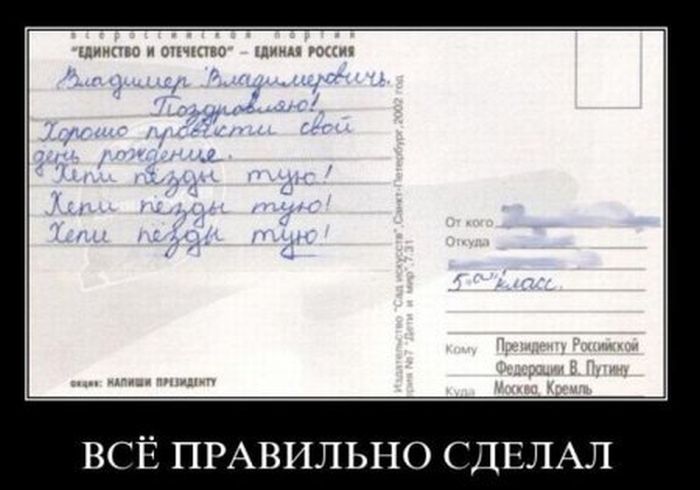 всероссийская партия
"ЕДИНСТВО И ОТЕЧЕСТВО" – ЕДИНАЯ РОССИЯ
Владимер Владимеровичь.
Поздровляю!
Хорошо провести свой
день рождение.
Хепи пёзды тую!
Хепи пёзды тую!
Хепи пёзды тую!
акция: НАПИШИ ПРЕЗИДЕНТУ
Издательство "Сад искусств", Санкт-Петербург, 2002 год
рия №7 "Дети и мир". 7.31
От кого
Откуда
5 "а" класс.
Кому Президенту Российской
Федерации В. Путину
Куда Москва, Кремль
ВСЁ ПРАВИЛЬНО СДЕЛАЛ